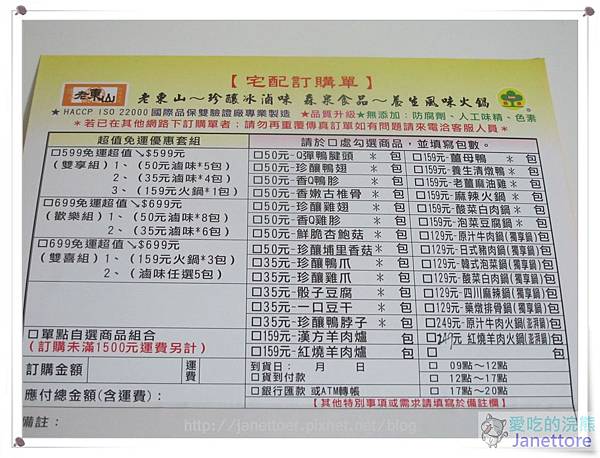 【宅配訂購單】
老東山
老東山～珍釀冰滷味 森泉食品～養生風味火鍋
★HACCP ISO 22000 國際品保雙驗證廠專業製造 ★品質升級★無添加：防腐劑、人工味精、色素
*若已在其他網路下訂購單者：請勿再重覆傳真訂單如有問題請來電洽客服人員*
超值免運優惠套組
□599免運超值↘$599元
(雙享組) 1、(50元滷味*5包)
2、(35元滷味*4包)
3、(159元火鍋*1包)
□699免運超值↘$699元
(歡樂組) 1、(50元滷味*8包)
2、(35元滷味*6包)
□699免運超值↘$699元
(雙喜組) 1、(159元火鍋*3包)
2、(滷味任選5包)
□單點自選商品組合
(訂購未滿1500元運費另計)
訂購金額
運費
應付總金額(含運費)：
備註：
請於□處勾選商品，並填寫包數。
□50元-Q彈鴨腱頭 * 包
□50元-珍釀鴨翅 * 包
□50元-香Q鴨胗 * 包
□50元-香嫩古椎骨 * 包
□50元-珍釀雞翅 * 包
□50元-香Q雞胗 * 包
□50元-鮮脆杏鮑菇 * 包
□50元-珍釀埔里香菇* 包
□35元-珍釀鴨爪 * 包
□35元-珍釀雞爪 * 包
□35元-骰子豆腐 * 包
□35元-一口豆干 * 包
□35元-珍釀鴨脖子 * 包
□159元-漢方羊肉爐 包
□159元-紅燒羊肉爐 包
□159元-薑母鴨 * 包
□159元-養生清燉鴨 * 包
□159元-老薑麻油雞 * 包
□159元-麻辣火鍋 * 包
□159元-酸菜白肉鍋 * 包
□159元-泡菜豆腐鍋 * 包
□129元-原汁牛肉鍋(獨享鍋) 包
□129元-日式豬肉鍋(獨享鍋) 包
□129元-韓式泡菜鍋(獨享鍋) 包
□129元-酸菜白肉鍋(獨享鍋) 包
□129元-四川麻辣鍋(獨享鍋) 包
□129元-藥燉排骨鍋(獨享鍋) 包
□249元-原汁牛肉火鍋 包
紅燒羊肉火鍋 包
到貨日： 月 日
□貨到付款
□銀行匯款 或ATM轉帳
□ 09點～12點
□ 12點～17點
□ 17點～20點
【其他特別事項或需求請填寫於備註欄】
http://janettoer.pixnet.net/blog
愛吃的浣熊
Janettore